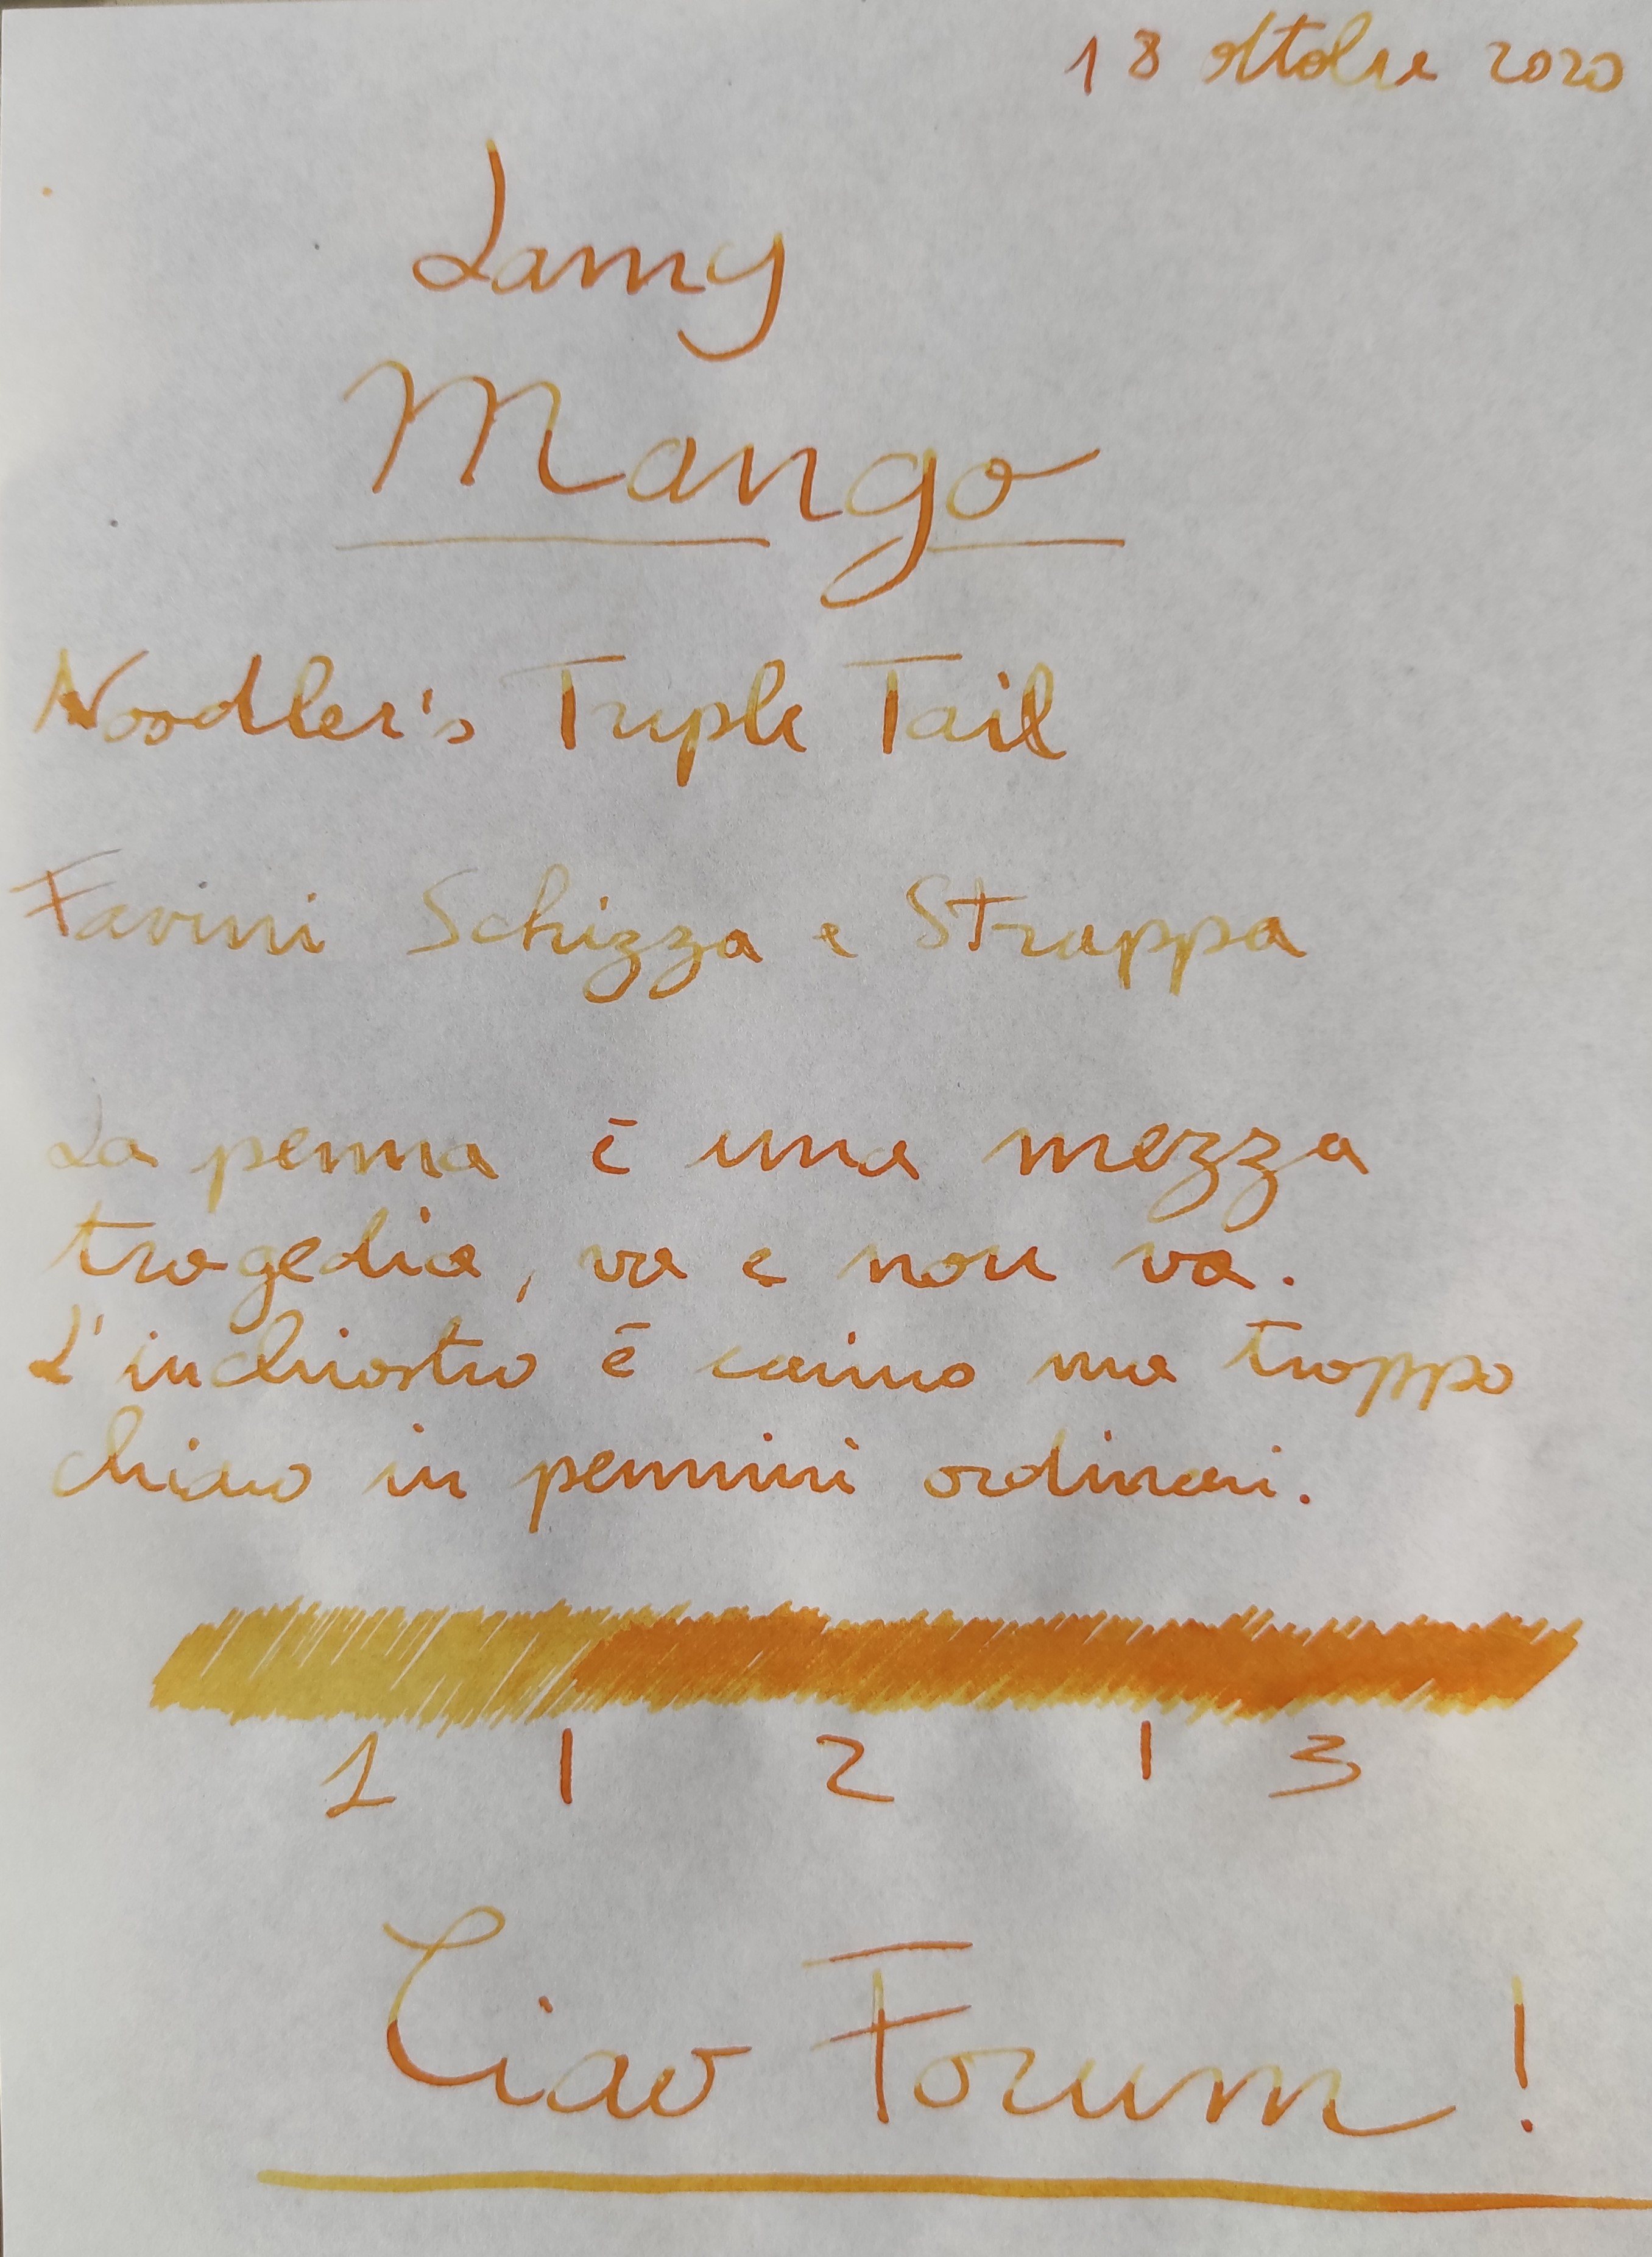 18 ottobre 2020
Lamy
Mango
Noodler's Triple Tail
Favini Schizza e Strappa
La penna è una mezza
tragedia, va e non va.
L'inchiostro è carino ma troppo
chiaro in pennini ordinari.
1 | 2 | 3
Ciao Forum!